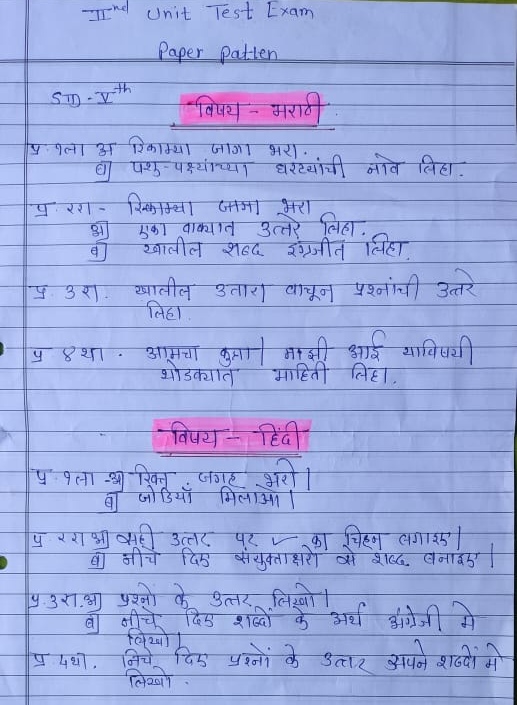 IInd Unit Test Exam
Paper Patten
STD - Vth
विषय - मराठी
प्र. १ला अ रिकाम्या जागा भरा.
ब] पशु-पक्ष्यांच्या घरट्यांची नावे लिहा.
प्र. २रा - रिकाम्या जागा भरा
अ] एका वाक्यात उत्तरे लिहा.
ब] खालील शब्द इंग्रजीत लिहा.
प्र. ३ रा. खालील उतारा वाचून प्रश्नांची उत्तरे
लिहा.
प्र ४था . आमचा कुत्रा / माझी आई याविषयी
थोडक्यात माहिती लिहा.
विषय - हिंदी
प्र. १ला -अ रिक्त जगह भरो|
ब] जोडियाँ मिलाओ|
प्र. २रा अ] सही उत्तर पर ✓ का चिह्न लगाइए|
ब] नीचे दिए संयुक्ताक्षरो से शब्द बनाइए|
प्र. ३रा. अ] प्रश्नो के उत्तर लिखो|
ब] नीचे दिए शब्दों के अर्थ अंग्रेजी मे
लिखो|
प्र. ४था. निचे दिए प्रश्नों के उत्तर अपने शब्दों मे
लिखो.